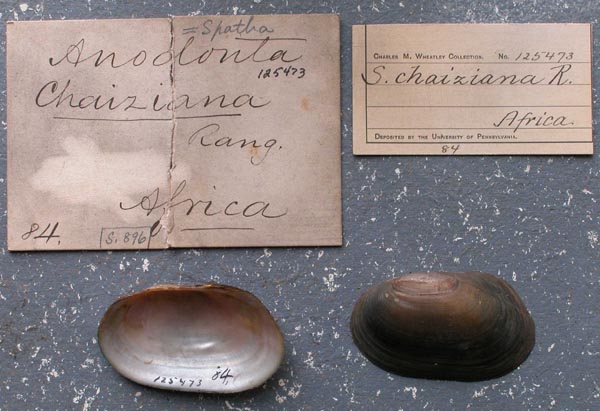 =Spatha
Anodonta
125473
Chaiziana
Rang.
Africa
84.
S. 896
CHARLES M. WHEATLEY COLLECTION. No. 125473
S. chaiziana R.
Africa.
DEPOSITED BY THE UNIVERSITY OF PENNSYLVANIA.
84
125473 84.